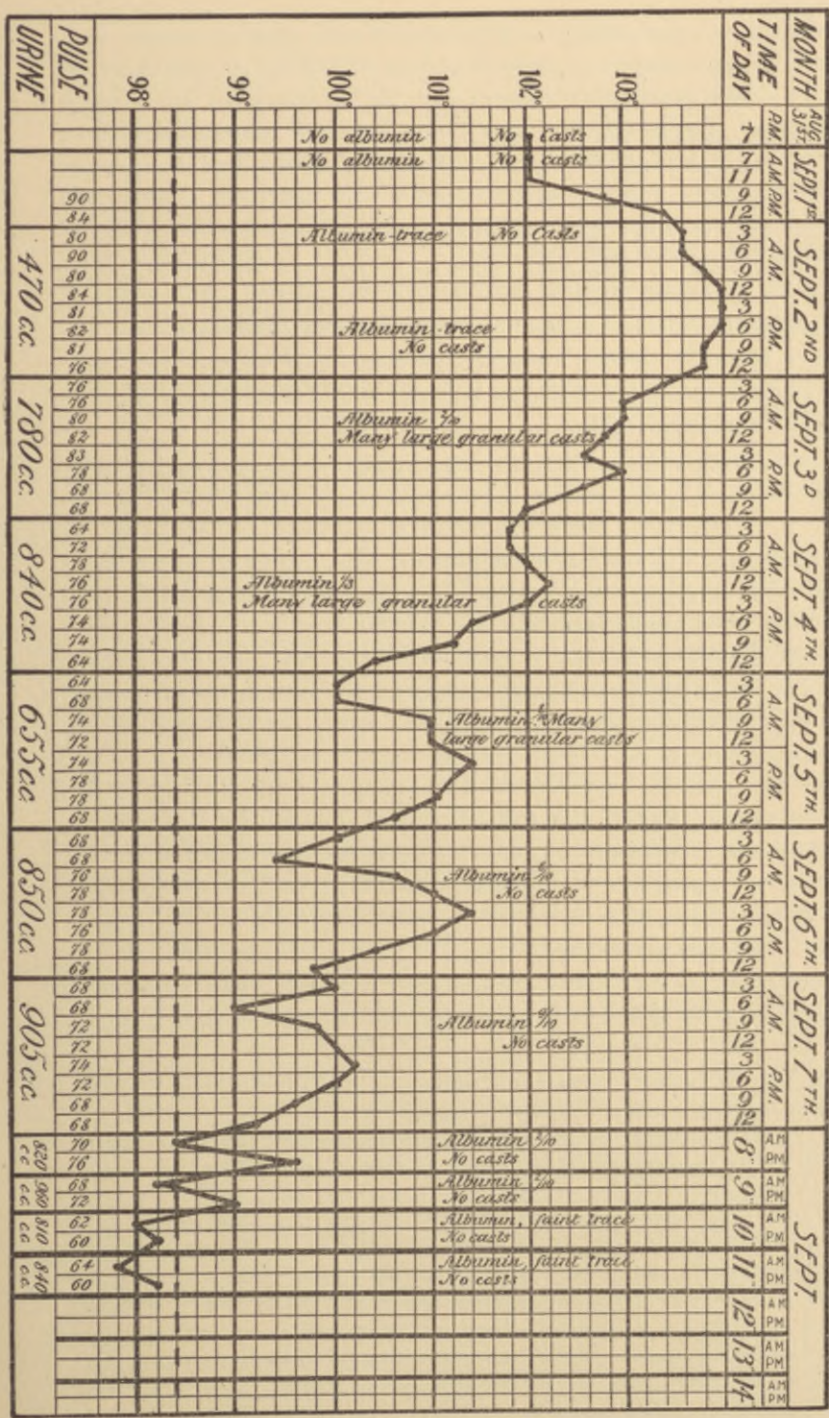 MONTH AUG 31ST SEPT. 1ST SEPT. 2ND SEPT. 3D SEPT. 4TH. SEPT. 5TH. SEPT. 6TH. SEPT. 7TH. SEPT.
TIME P.M. A.M. P.M. A.M. P.M. A.M. P.M. A.M. P.M. A.M. P.M. A.M. P.M. A.M. P.M. AM PM AM PM AM PM AM PM AM PM AM PM AM PM
OF DAY 7 7 11 9 12 3 6 9 12 3 6 9 12 3 6 9 12 3 6 9 12 3 6 9 12 3 6 9 12 3 6 9 12 3 6 9 12 3 6 9 12 3 6 9 12 3 6 9 12 3 6 9 12 8 9 10 11 12 13 14
103°
102°
101°
100°
99°
98°
No albumin No Casts
No albumin No casts
Albumin-trace No Casts
Albumin-trace
No casts
Albumin
Many large granular casts
Albumin
Many large granular casts
Albumin Many
large granular casts
Albumin
No casts
Albumin
No casts
Albumin
No casts
Albumin
No casts
Albumin, faint trace
No casts
Albumin, faint trace
No casts
PULSE 90 84 80 90 80 84 81 82 81 76 76 76 80 82 83 78 68 68 64 72 78 76 76 74 74 64 64 68 74 72 74 78 78 68 68 68 76 78 78 76 78 68 68 68 72 72 74 72 68 68 70 76 68 72 62 60 64 60
URINE 470 c.c. 780 c.c. 840 c.c. 655 c.c. 850 c.c. 905 c.c. 820 c.c. 960 c.c. 810 c.c. 840 c.c.